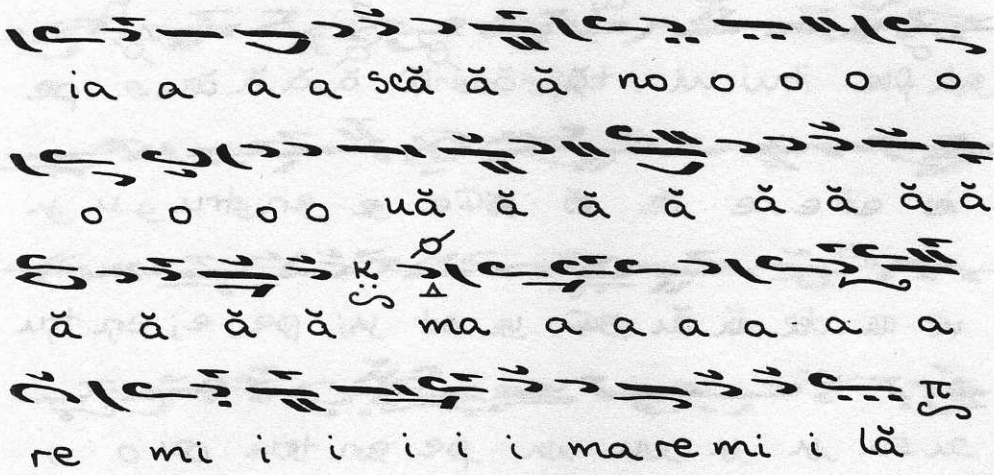 ia a a a scă ă ă no o o o o
o o o o uă ă ă ă ă ă ă ă
ă ă ă ă ma a a a a a a
re mi i i i i i ma re mi i lă